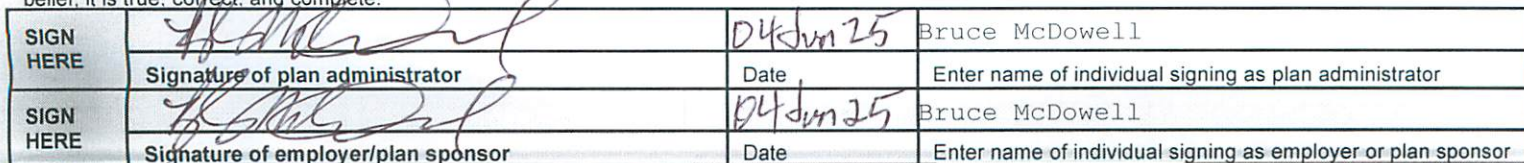 belief, it is true, correct, and complete.
SIGN HERE 04Jun25 Bruce McDowell
Signature of plan administrator Date Enter name of individual signing as plan administrator
SIGN HERE 04Jun25 Bruce McDowell
Signature of employer/plan sponsor Date Enter name of individual signing as employer or plan sponsor